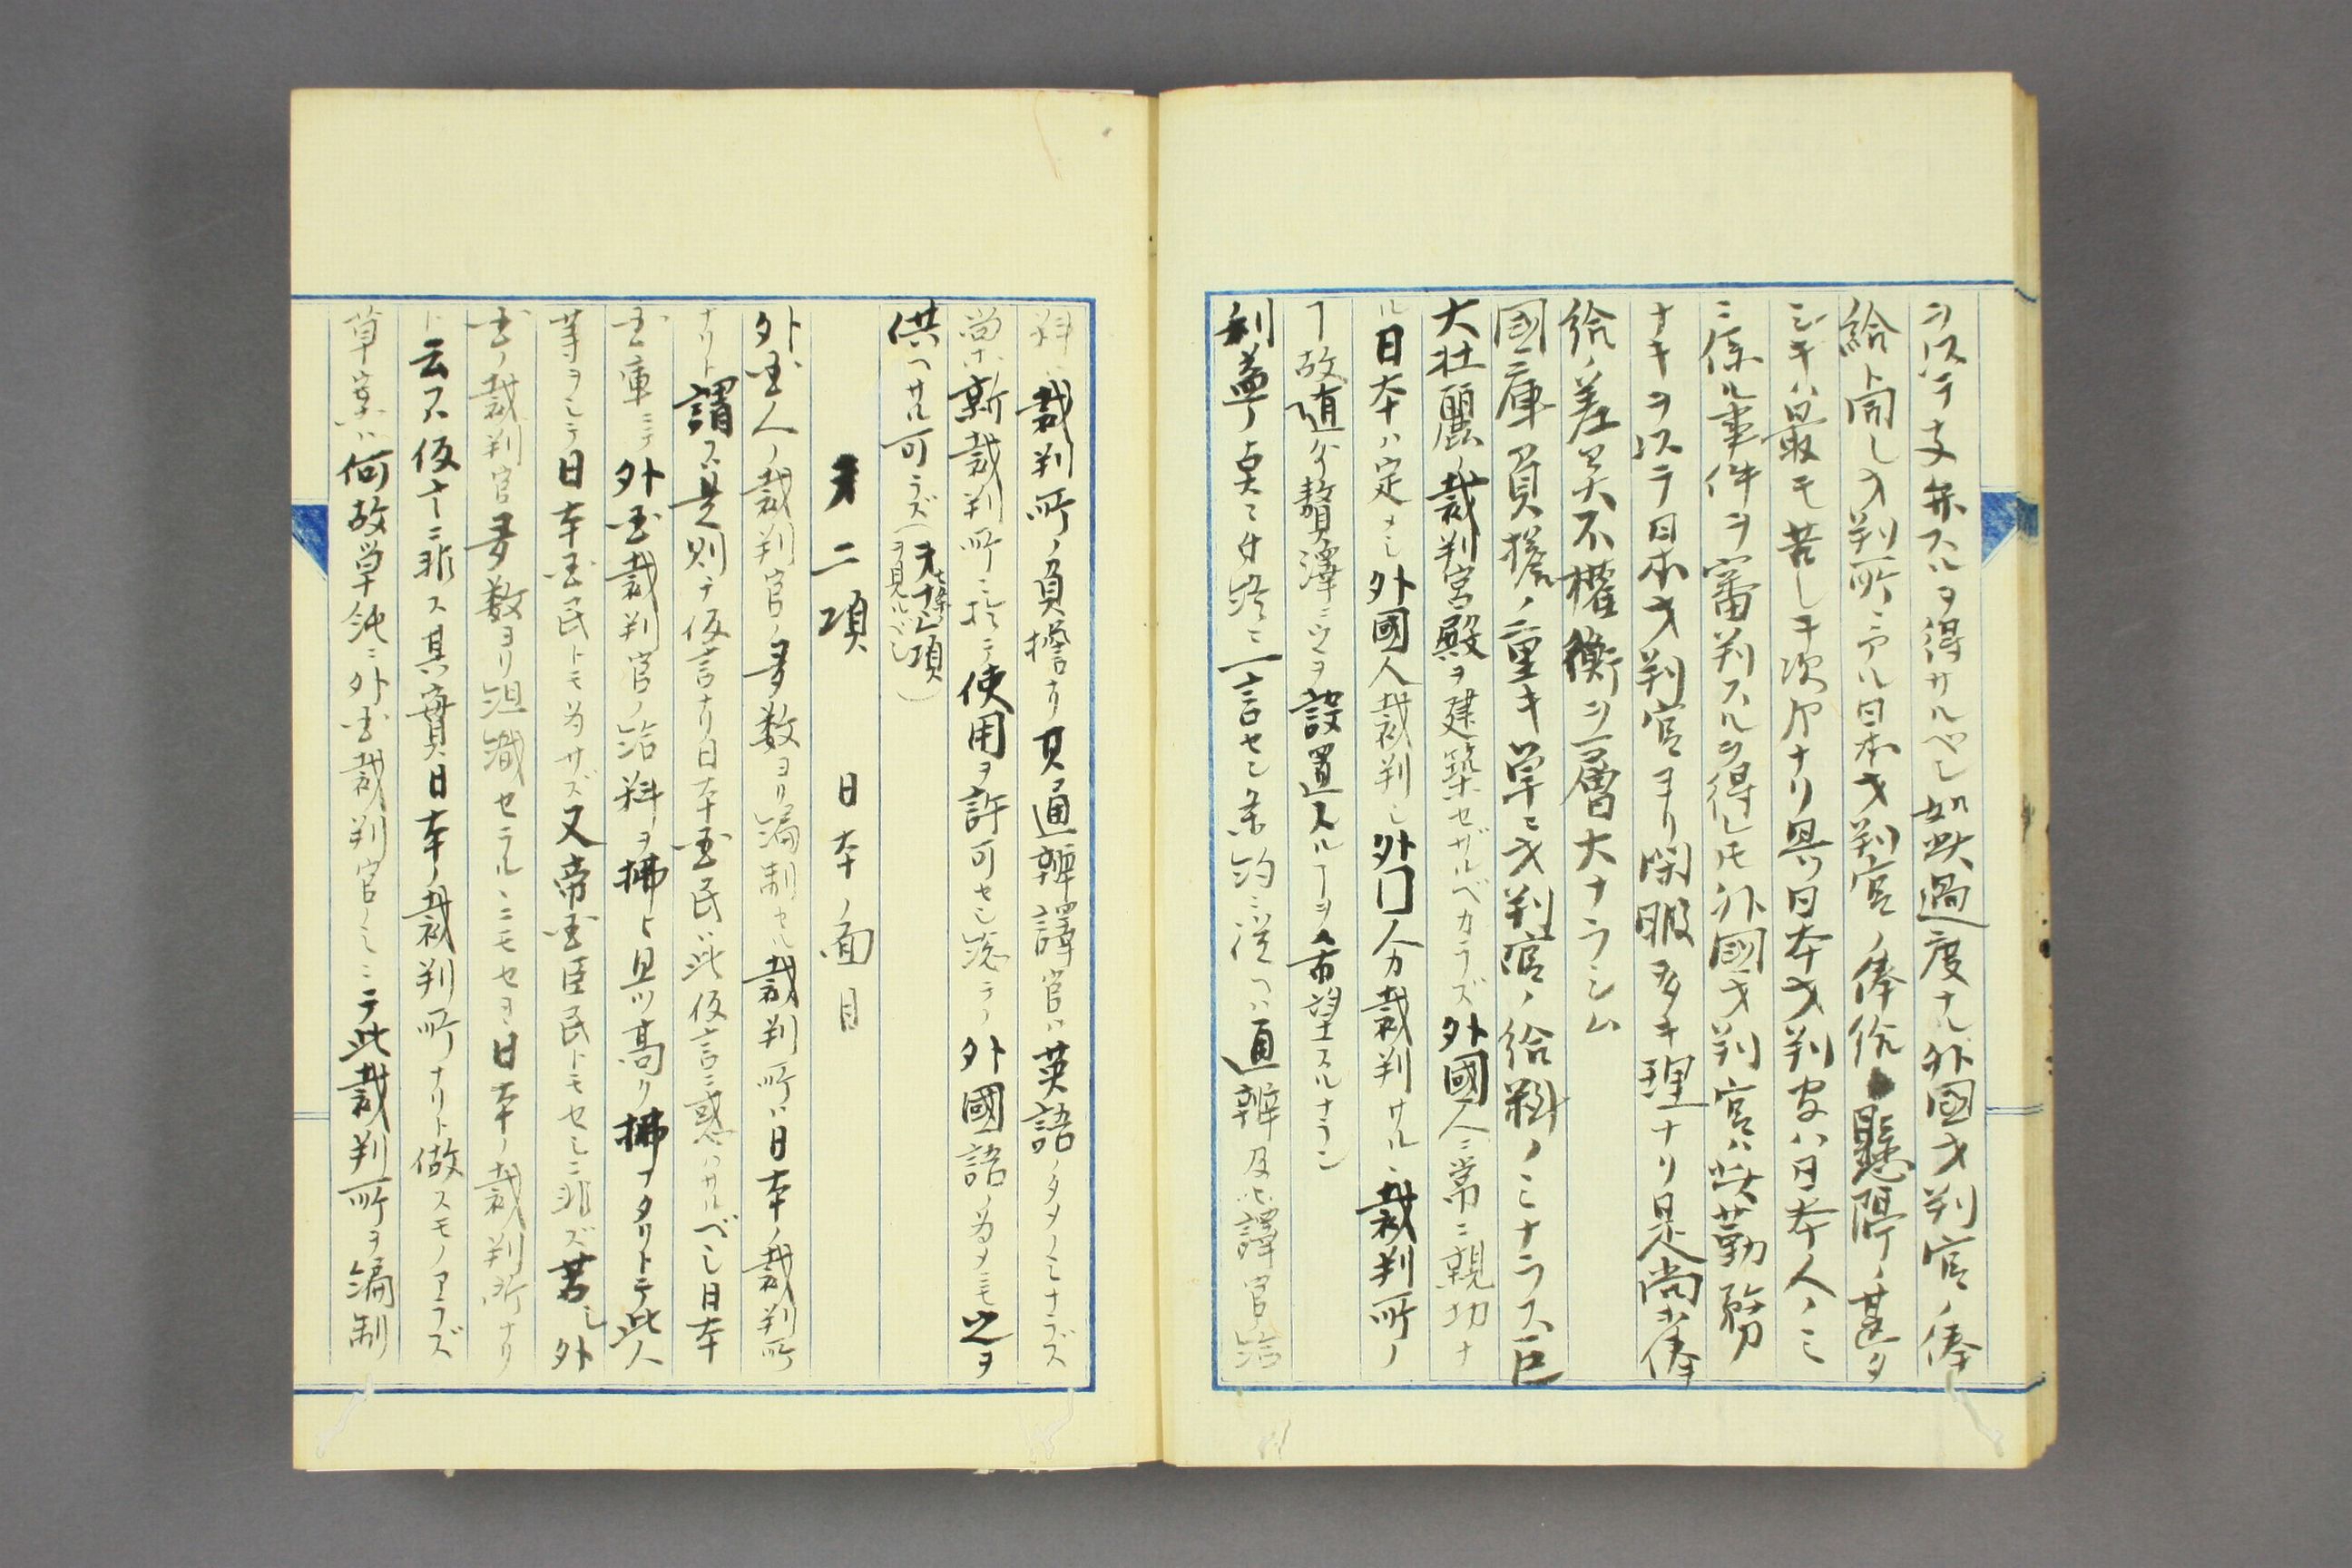 ヲ以テ支弁スルヲ得サルベシ如此過度ナル外国裁判官ノ俸
給ト同シク判所ニ予ル日本裁判官ノ俸給懸隔ノ甚タ
シキハ最モ苦シキ次第ナリ具ツ日本裁判官ハ日本人ノミ
ニ係ル事件ヲ審判スルヲ得レ𪜈外國裁判官ハ此勤務
ナキヲ以テ日本裁判官ヨリ閑暇多キ理ナリ是尚ホ俸
給ノ差異不權衡ヲ一層大ナラシム
國庫負擔ノ重キ単ニ裁判官ノ給料ノミナラス巨
大壮麗ノ裁判宮殿ヲ建築セザルベカラズ外國人ニ常ニ親切ナ
ル日本ハ定メシ外國人裁判シ外国人カ裁判サルヽ裁判所ノ
ヿ故随分贅澤ニ之ヲ設置スルヿヲ希望スルナラン
利益ノ点ニ付終ニ一言セン条約ニ従ヘハ通辯及ヒ譯官給
料ハ裁判所ノ負擔ナリ其通辯譯官ハ英語ノタメノミナラズ
嘗ホ新裁判所ニ於テ使用ヲ許可セシ總テノ外國語ノ為メニモ之ヲ
供ヘサル可ラズ(才七十二項ヲ見ルベシ)
才二項 日本ノ面目
外国人ノ裁判官ノ多数ヨリ編制セル裁判所ハ日本ノ裁判所
ナリト謂フハ是則チ仮言ナリ日本国民ハ此仮言ニ惑ハサルベシ日本
国庫ニテ外国裁判官ノ給料ヲ拂ヒ且ツ高ク拂フタリトテ此人
等ヲシテ日本国民トモ為サズ又帝国臣民トモセシニ非ズ若シ外
国ノ裁判官多数ヨリ組織セラルヽニモセヨ日本ノ裁判所ナリ
ト云フハ仮言ニ非ス其實日本ノ裁判所ナリト做スモノアラズ
草案ハ何故単純ニ外国裁判官ノミニテ此裁判所ヲ編制